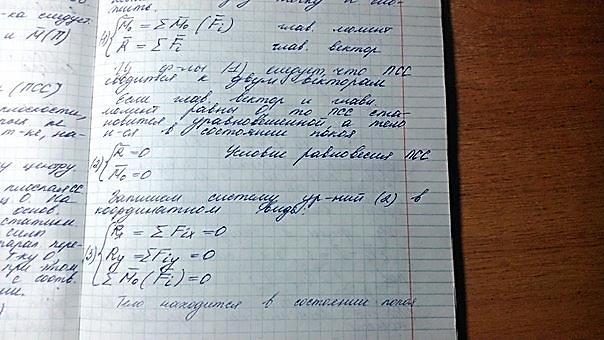 -ка следует
и М(П)
(ПСС)
плоскости,
т-ке, на-
центру
плоская СС
ц. О. На
основ.
статики.
сил
парал. пере-
т-ку О,
при этом
с соотв.
жить.
(1) { M̄о = Σ M̄о (F̄i) глав. момент
R̄ = Σ F̄i глав. вектор
Из ф-лы (1) следует, что ПСС
сводится к двум векторам
Если глав. вектор и главн.
момент равны 0, то ПСС ста-
новится уравновешенной, а тело
н-ся в состоянии покоя
(2) { R̄ = 0 Условие равновесия ПСС
M̄о = 0
Запишем систему ур-ний (2) в
координатном виде:
(3) { Rx = Σ Fix = 0
Ry = Σ Fiy = 0
Σ M̄о (F̄i) = 0
Тело находится в состоянии покоя